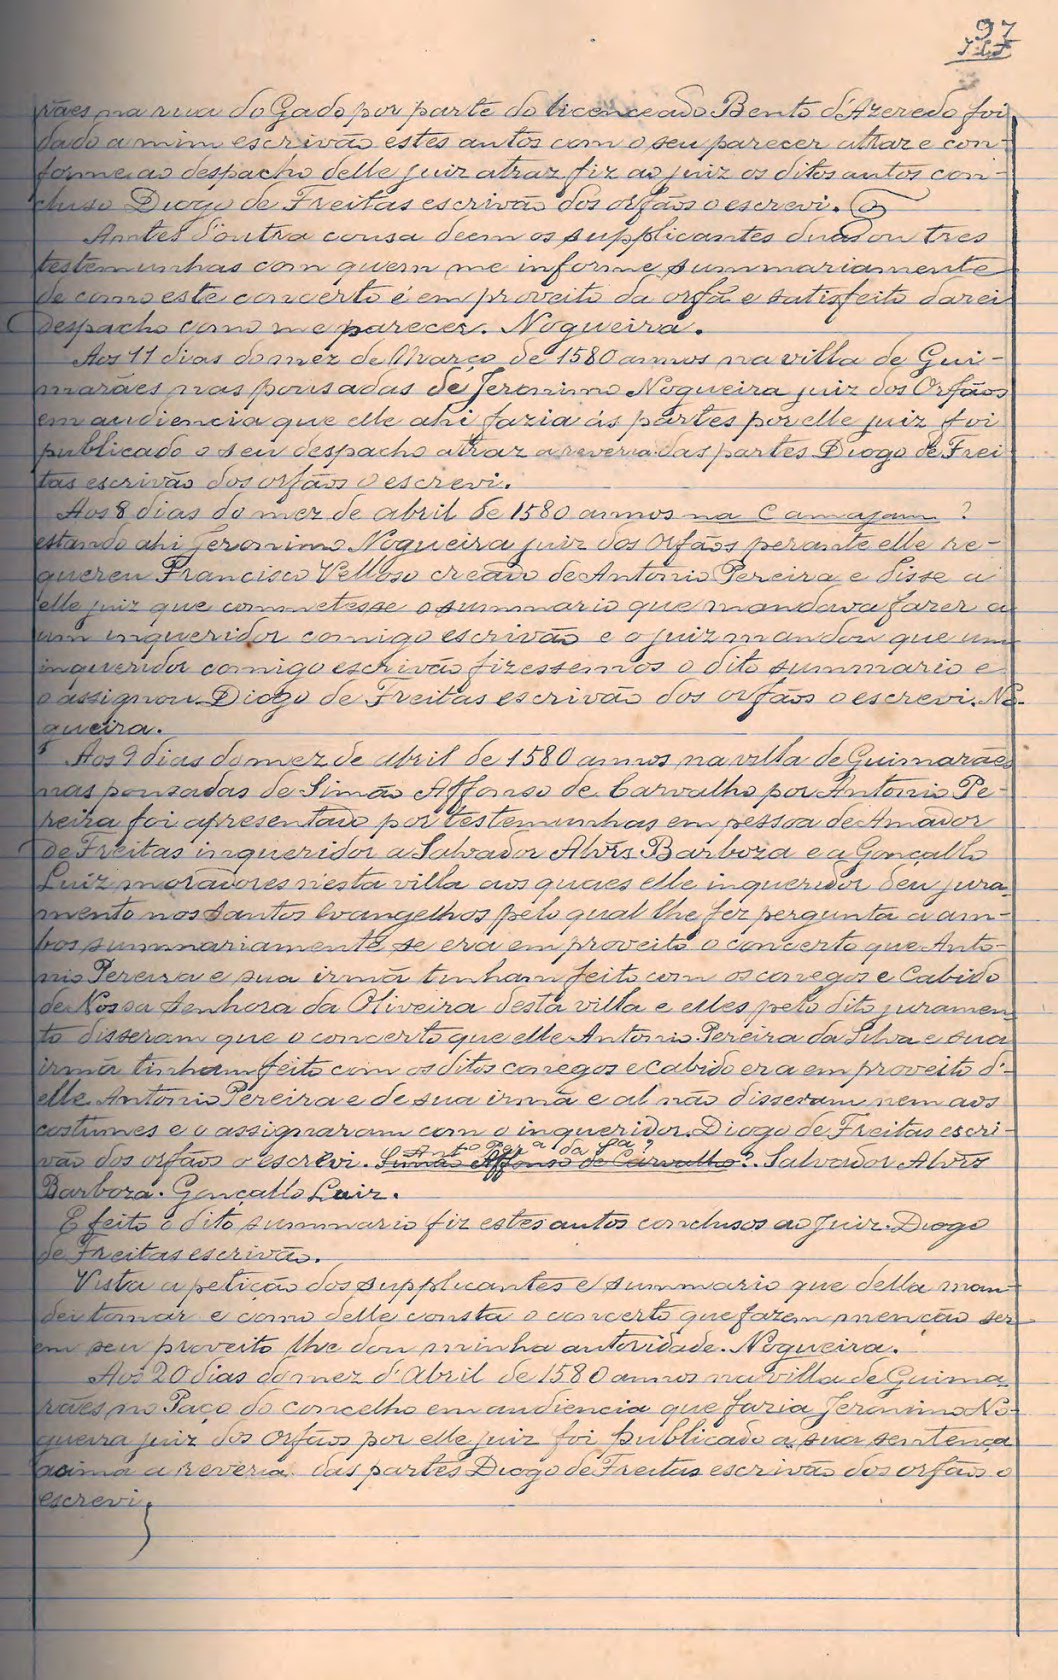 97
rães na rua do Gado por parte do licenceado Bento d'Azeredo foi
dado a mim escrivão estes autos com o seu parecer atraz e con-
forme ao despacho delle juiz atraz fiz ao juiz os ditos autos con-
cluso Diogo de Freitas escrivão dos orfãos o escrevi.
Anntes d'outra cousa deem os supplicantes duas ou tres
testemunhas com quem me informe summariamente
de como este concerto é em proveito da orfã e satisfeito darei
despacho como me parecer. Nogueira.
Aos 11 dias do mez de Março de 1580 annos na villa de Gui-
marães nas pousadas de Jeronimo Nogueira juiz dos Orfãos
em audiencia que elle ahi fazia ás partes por elle juiz foi
publicado o seu despacho atraz a reveria das partes Diogo de Frei
tas escrivão dos orfãos o escrevi.
Aos 8 dias do mez de abril de 1580 annos na Camajam ?
estando ahi Jeronimo Nogueira juiz dos Orfãos perante elle re-
quereu Francisco Velloso creado de Antonio Pereira e disse a
elle juiz que commetesse o summario que mandava fazer a
um inqueridor comigo escrivão e o juiz mandou que um
inqueridor comigo escrivão fizessemos o dito summario e
o assignou. Diogo de Freitas escrivão dos orfãos o escrevi. No-
gueira.
Aos 9 dias do mez de abril de 1580 annos na villa de Guimarães
nas pousadas de Simão Affonso de Carvalho por Antonio Pe-
reira foi apresentado por testemunhas em pessoa de Amador
de Freitas inqueridor a Salvador Alvrs Barboza e a Gonçallo
Luiz moradores n'esta villa aos quaes elle inqueridor deu jura-
mento nos santos Evangelhos pelo qual lhe fez pergunta a am-
bos summariamente se era em proveito o concerto que Anto-
nio Pereira e sua irmã tinham feito com os conegos e Cabido
de Nossa Senhora da Oliveira desta villa e elles pelo dito juramen
to disseram que o concerto que elle Antonio Pereira da Silva e sua
irmã tinham feito com os ditos conegos e Cabido era em proveito d'
elle Antonio Pereira e de sua irmã e al não disseram nem aos
costumes e o assignaram com o inqueridor. Diogo de Freitas escri-
vão dos orfãos o escrevi. Simão Affonso de Carvalho?. Salvador Alvrs
Barboza. Gonçallo Luiz.
E feito o dito summario fiz estes autos conclusos ao Juiz. Diogo
de Freitas escrivão.
Vista a petição dos supplicantes e summario que della man-
dei tomar e como delle consta o concerto que fazem menção ser
em seu proveito lhe dou minha autoridade. Nogueira.
Aos 20 dias do mez d'Abril de 1580 annos na villa de Guima-
rães no Paço do concelho em audiencia que fazia Jeronimo No-
gueira juiz dos Orfãos por elle juiz foi publicado a sua sentença
acima a reveria das partes Diogo de Freitas escrivão dos orfãos o
escrevi.